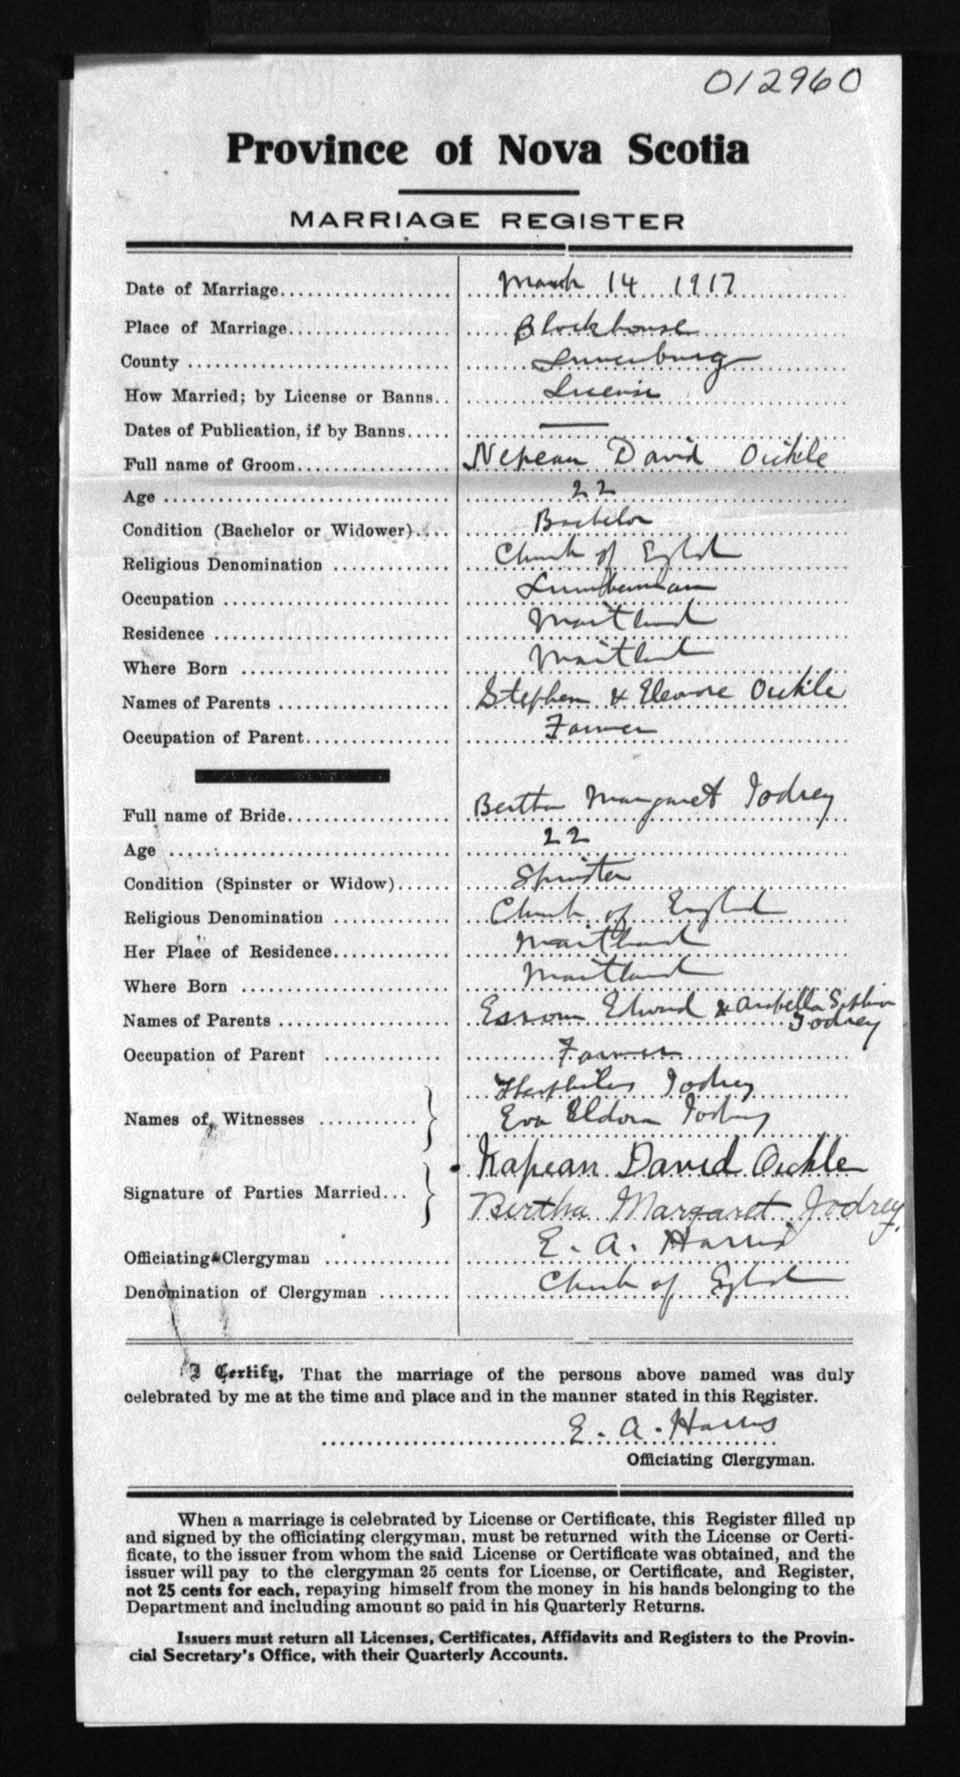 012960
Province of Nova Scotia
MARRIAGE REGISTER
Date of Marriage.................... March 14 1917
Place of Marriage................... Blockhouse
County ............................. Lunenburg
How Married; by License or Banns.. License
Dates of Publication, if by Banns..... ——
Full name of Groom.................. Nepean David Oickle
Age ................................ 22
Condition (Bachelor or Widower).... Bachelor
Religious Denomination ............. Church of Englnd
Occupation ......................... Lumberman
Residence .......................... Maitland
Where Born ......................... Maitland
Names of Parents ................... Stephen & Elenore Oickle
Occupation of Parent................ Farmer
Full name of Bride.................. Bertha Margaret Jodrey
Age ................................ 22
Condition (Spinster or Widow)...... Spinster
Religious Denomination ............. Church of Englnd
Her Place of Residence............. Maitland
Where Born ......................... Maitland
Names of Parents ................... Esrom Edward & Arabella Sophia
Jodrey
Occupation of Parent ............... Farmer
Jodrey
Names of Witnesses ........... Eva Eldora Jodrey
Kapean David Oickle
Signature of Parties Married... Bertha Margaret Jodrey.
Officiating Clergyman .............. E. A. Harris
Denomination of Clergyman ........ Church of Englnd
I Certify, That the marriage of the persons above named was duly
celebrated by me at the time and place and in the manner stated in this Register.
E. A. Harris
Officiating Clergyman.
When a marriage is celebrated by License or Certificate, this Register filled up
and signed by the officiating clergyman, must be returned with the License or Certi-
ficate, to the issuer from whom the said License or Certificate was obtained, and the
issuer will pay to the clergyman 25 cents for License, or Certificate, and Register,
not 25 cents for each, repaying himself from the money in his hands belonging to the
Department and including amount so paid in his Quarterly Returns.
Issuers must return all Licenses, Certificates, Affidavits and Registers to the Provin-
cial Secretary's Office, with their Quarterly Accounts.